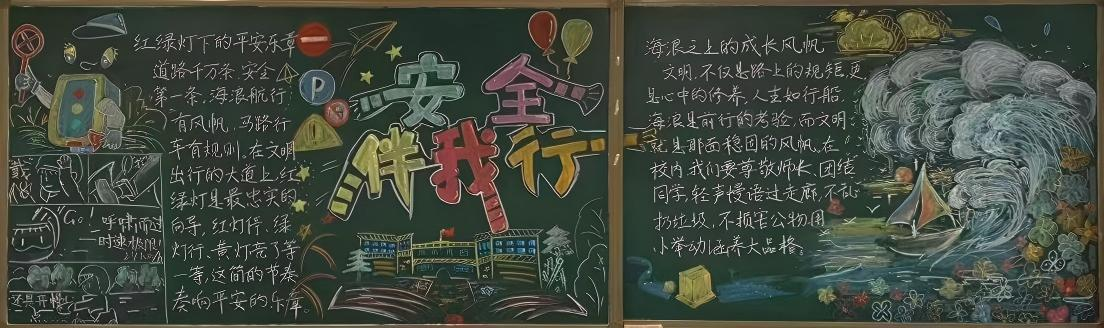 红绿灯下的平安乐章
道路千万条,安全
第一条,海浪航行
有风帆,马路行
车有规则。在文明
出行的大道上,红
绿灯是最忠实的
向导,红灯停,绿
灯行,黄灯亮了等
一等,这简的节奏
奏响平安的乐章。
P
安全
伴我行
Go!
呼啸而过
时速极限!
还是开慢
海浪之上的成长风帆
文明,不仅是路上的规矩,更
是心中的修养,人生如行船,
海浪是前行的考验,而文明
就是那面稳固的风帆。在
校内,我们要尊敬师长,团结
同学,轻声慢语过走廊,不乱
扔垃圾,不损害公物,用
小举动涵养大品格。